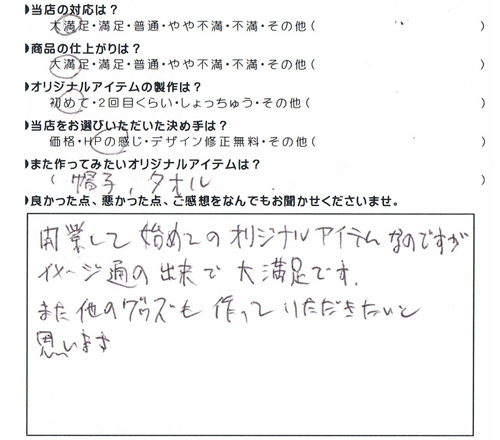 ●当店の対応は？
大満足・満足・普通・やや不満・不満・その他(　)
●商品の仕上がりは？
大満足・満足・普通・やや不満・不満・その他(　)
●オリジナルアイテムの製作は？
初めて・2回目くらい・しょっちゅう・その他(　)
●当店をお選びいただいた決め手は？
価格・HPの感じ・デザイン修正無料・その他(　)
●また作ってみたいオリジナルアイテムは？
(帽子、タオル　)
●良かった点、悪かった点、ご感想をなんでもお聞かせくださいませ。
開業して始めてのオリジナルアイテムなのですが
イメージ通の出来で大満足です。
また他のグッズも作っていただきたいと
思います